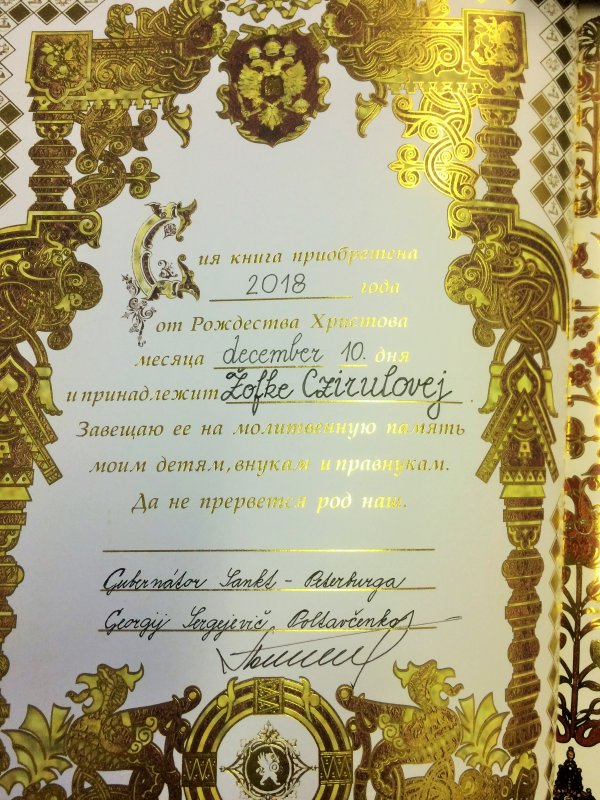 Сия книга приобретена
2018 года
от Рождества Христова
месяца december 10. дня
и принадлежит Žofke Czirulovej
Завещаю ее на молитвенную память
моим детям, внукам и правнукам.
Да не прервется род наш.
Gubernátor Sankt - Peterburga
Georgij Sergejevič Poltavčenko